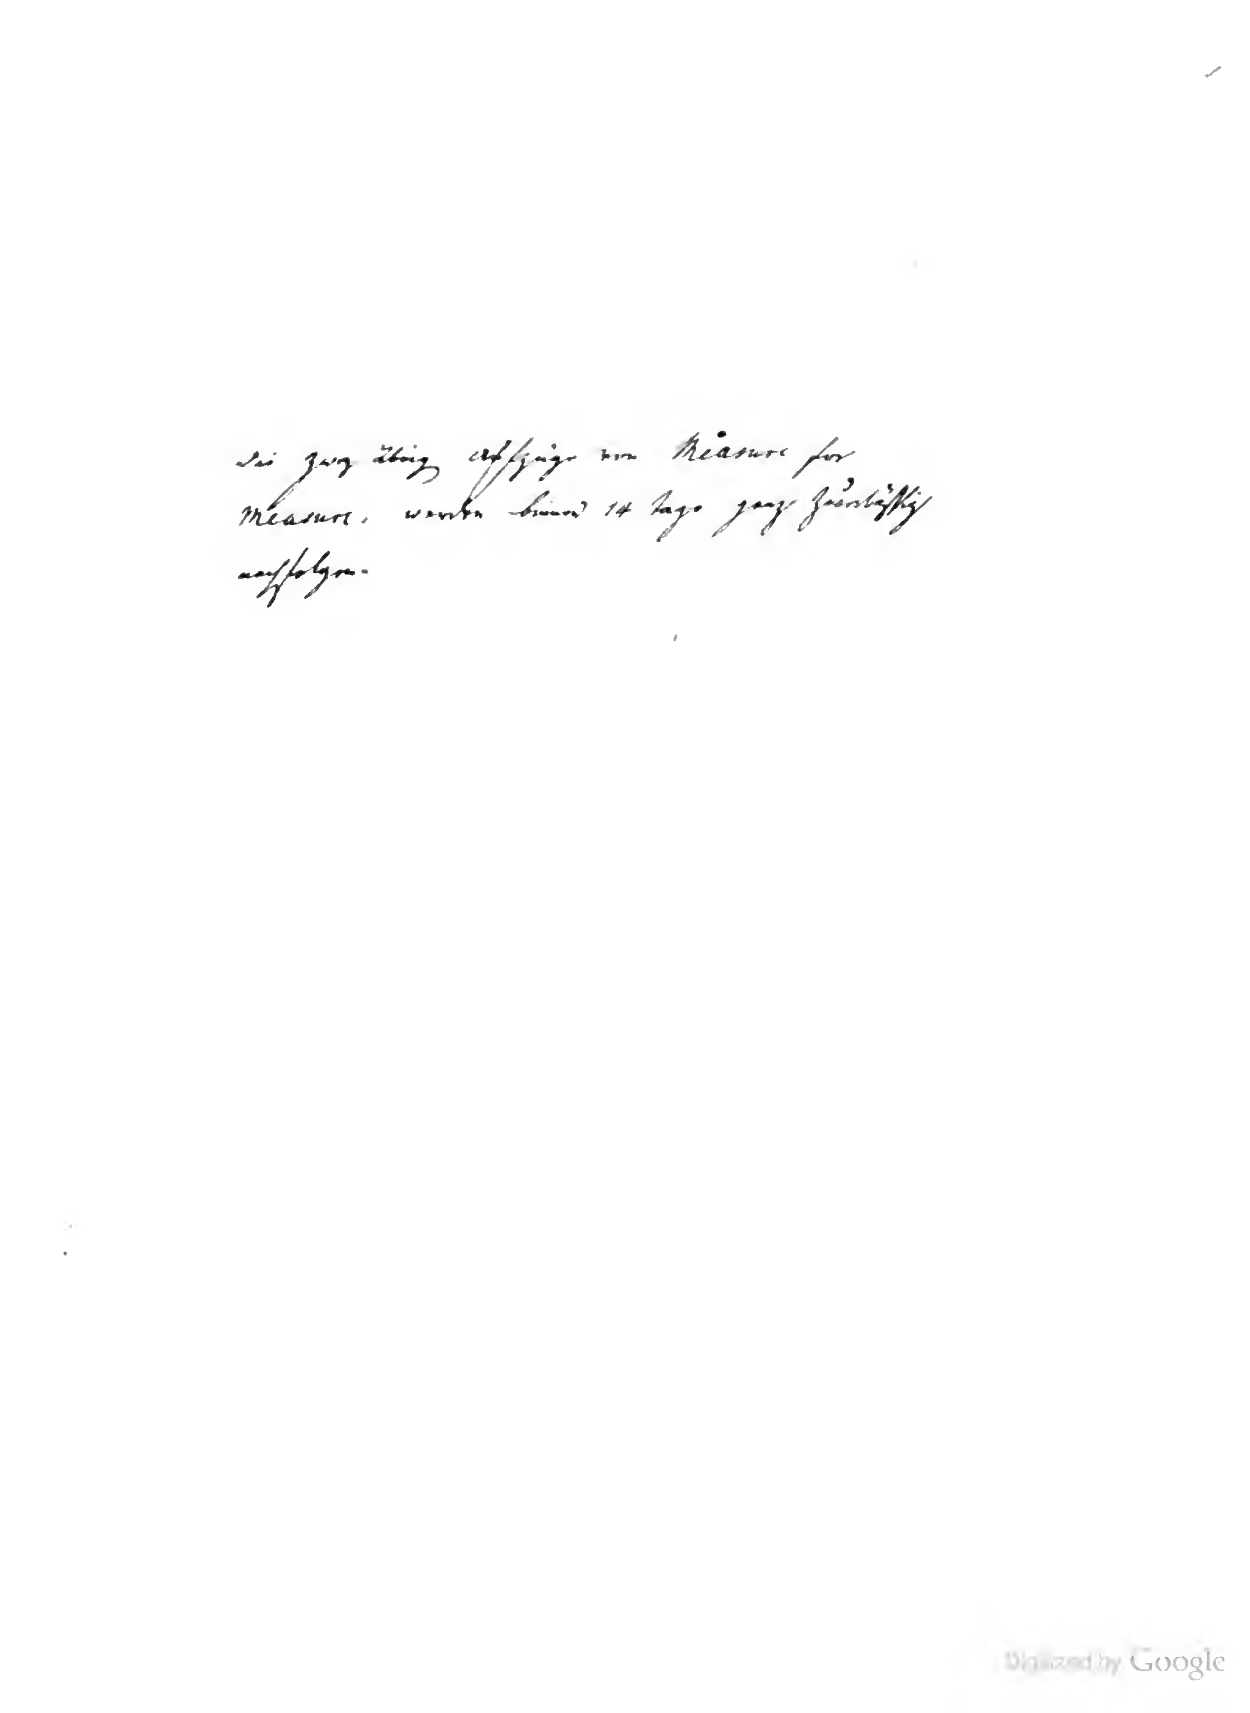 Die zwey übrig Aufzüge von Measure for
Measure, werden binnen 14 Tage ganz zuverläßig
nachfolgen.
Digitized by Google